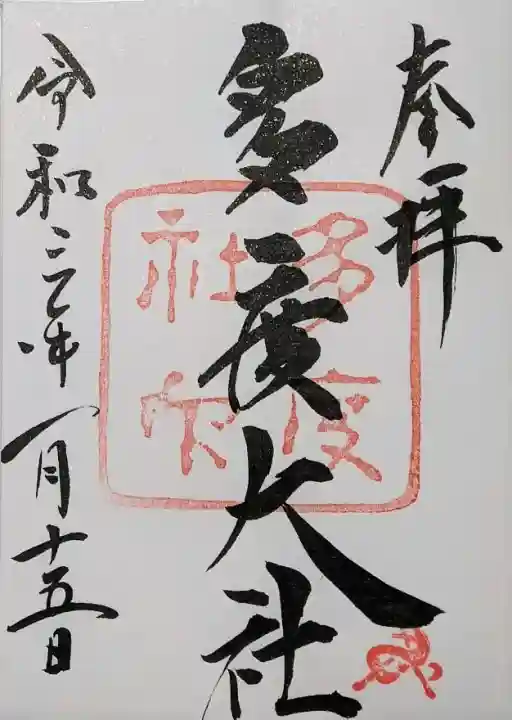 奉拝
多度大社
多度
社印
令和三年一月十五日